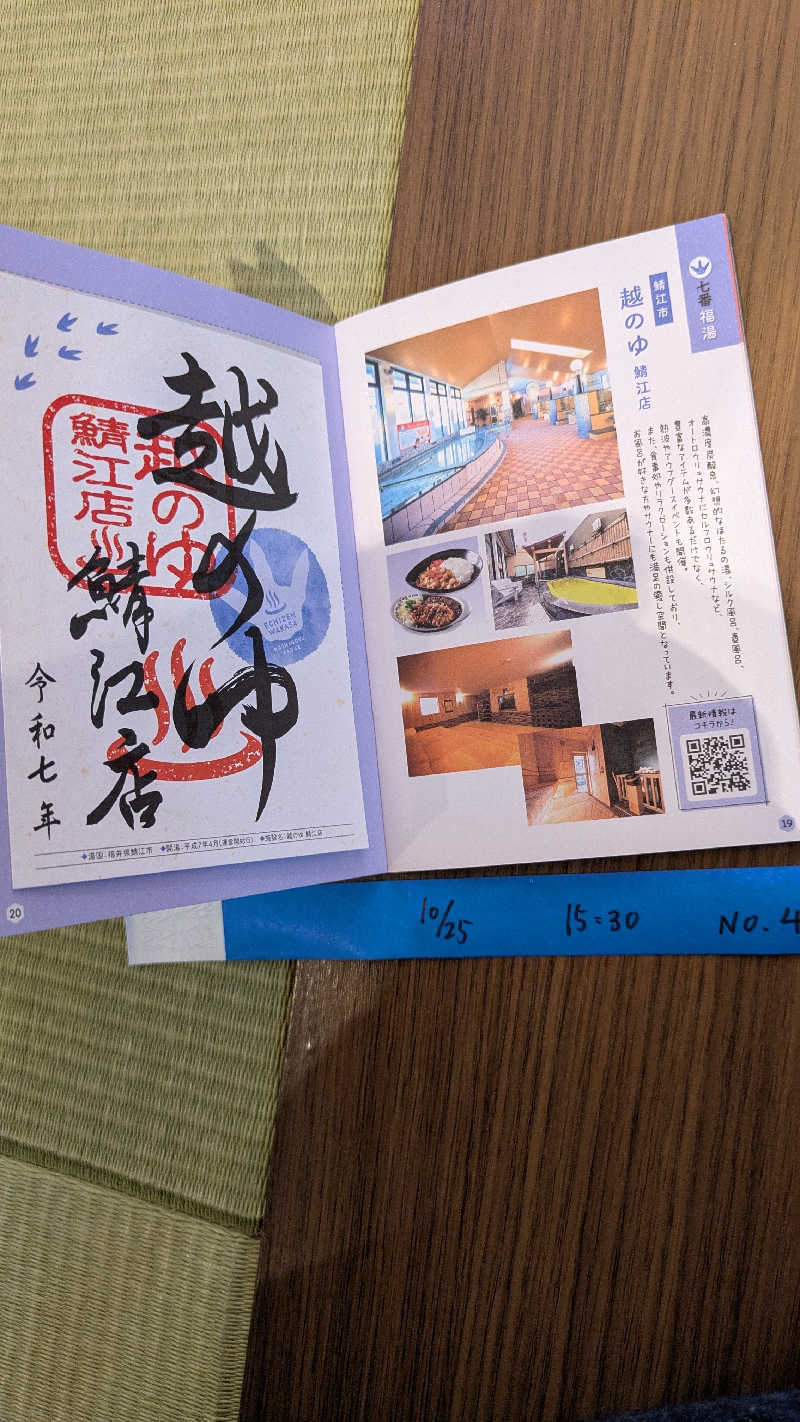 七番福湯
鯖江市
越のゆ 鯖江店
高濃度炭酸泉、幻想的なほたるの湯、シルク風呂、壺風呂、
オートロウリュサウナにセルフロウリュサウナなど、
豊富なアイテムが多数あるだけでなく、
熱波やアウフグースイベントも開催。
また、食事処やリラクゼーションも併設しており、
お風呂が好きな方やサウナーにも満足の癒し空間となっています。
最新情報は
コチラから!
19
越のゆ
鯖江店
令和七年
越のゆ
鯖江店
ECHIZEN
WAKASA
◆湯国:福井県鯖江市 ◆開湯:平成7年4月(運営開始日) ◆施設名:越のゆ 鯖江店
20
10/25 15:30 NO.4